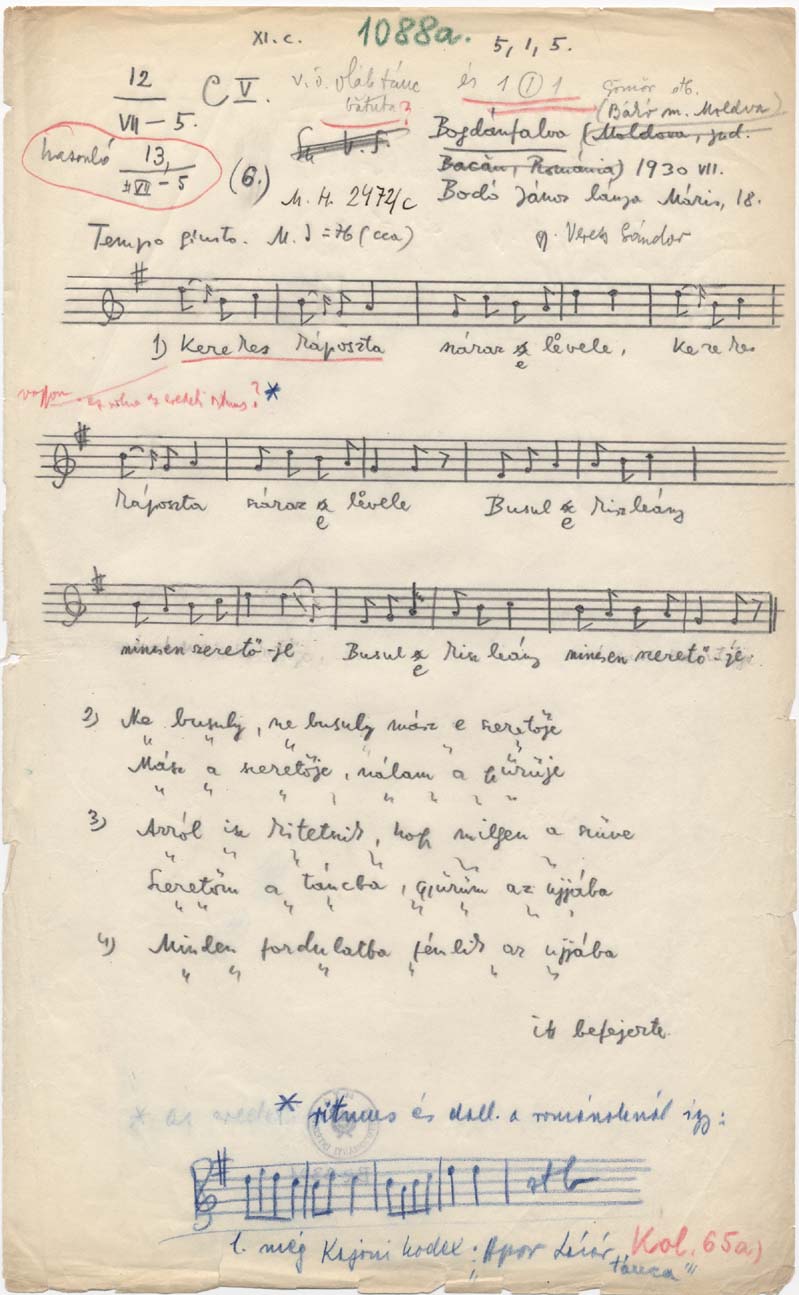 XI. c. 1088a. 5, 1, 5.
12 C V. v.ö. oláh tánc és 1 (1) 1 Gömör stb.
VII – 5. bătuta? (Bákó m. Moldva)
Bogdánfalva (Moldova, jud.
hasonló 13, (6.) Bacău, Románia) 1930 VII.
VII – 5 M. H. 2472/c Bodó János lánya Máris, 18.
Tempo giusto. M. ♩ = 76 (cca) gy. Veress Sándor
1) Kerekes káposzta száraz e lëvele, kerekes
vajjon ez volna az eredeti ritmus? *
káposzta száraz e lëvele Busul e kisleány
nincsen szerető-je Busul e kisleány nincsen szerető-je.
2) Ne busuly, ne busuly mász e szeretője
Mász a szeretője, nálam a gürüje
3) Arról is kitetnik, hogy milyen a szüve
Szeretőm a táncba, gjürüm az ujjába
4) Minden fordulatba fénlik az ujjába
itt befejezte.
* ritmus és dall. a románoknál így:
stb
l. még Kajoni kodex: „Apor Lázár tánca" Kol. 65a)